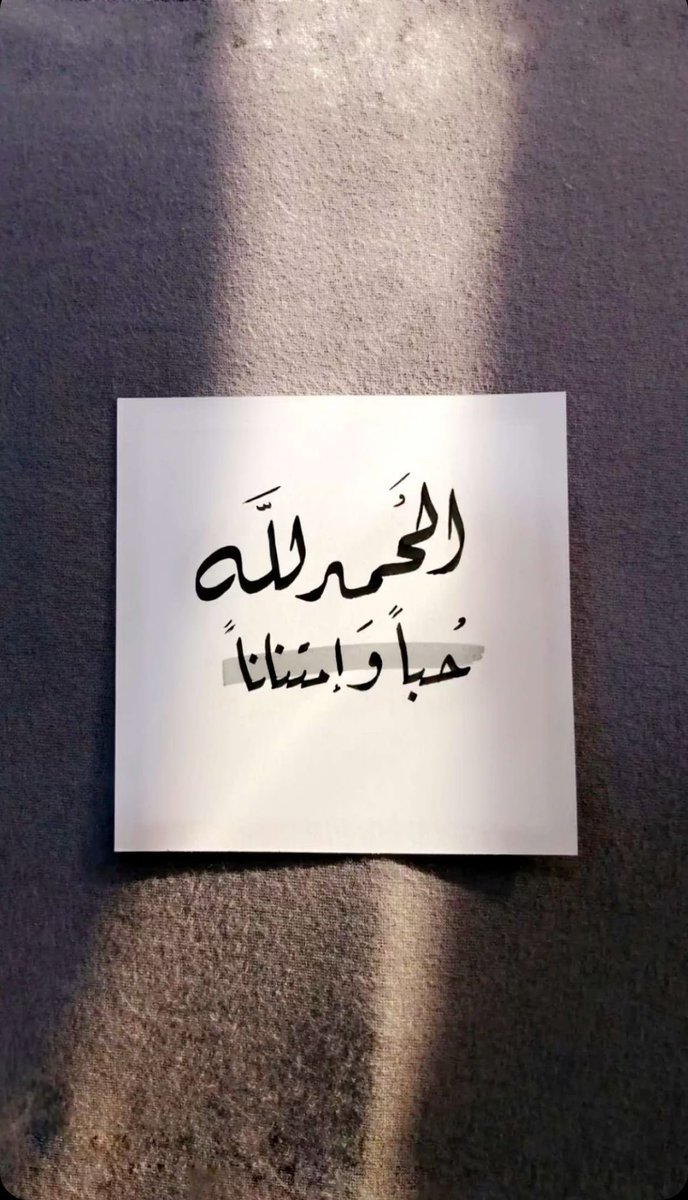 الحُمدللَّه
حُباً وَإمتناناً